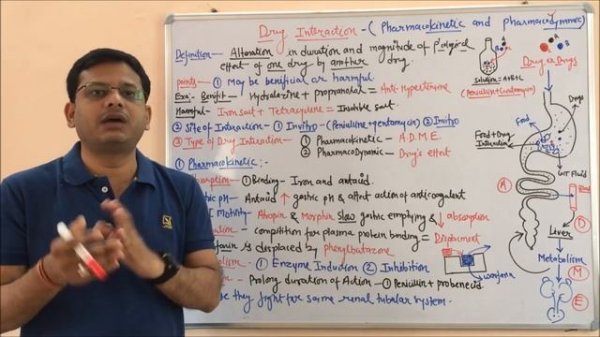 Drug Interaction - (Pharmacokinetic and pharmacodynamic)
Definition - Alteration in duration and magnitude of P'logical
effect of one drug by another drug.
points - ① May be beneficial or harmful.
Exa:- Benefit - Hydralazine + propranolol = Anti Hypertensive
Harmful - Iron salt + Tetracycline = Insoluble salt.
② Site of Interaction - ① Invitro - (Penicillin + gentamycin) ② Invivo
③ Type of Drug Interaction ① Pharmacokinetic - A.D.M.E.
② Pharmacodynamic - Drug's effect
① Pharmacokinetic :-
① Binding - Iron and antacid.
pH - Antacid ↑ gastric pH & affect action of anticoagulant
Motility - Atropin & Morphin slow gastric emptying & ↓ absorption
competition for plasma protein binding = Displacement
is displaced by phenylbutazone
① Enzyme Induction ② Inhibition
Prolong duration of Action - ① Penicillin + probenecid
they fight for same renal tubular system.
A B
Solution = A+B+L
(Penicillin + Gentamycin)
Drug or Drugs
Drugs
Food
Food + Drug
Interaction
GIT Fluid
A
D
Liver
Metabolism
M
E
warfarin